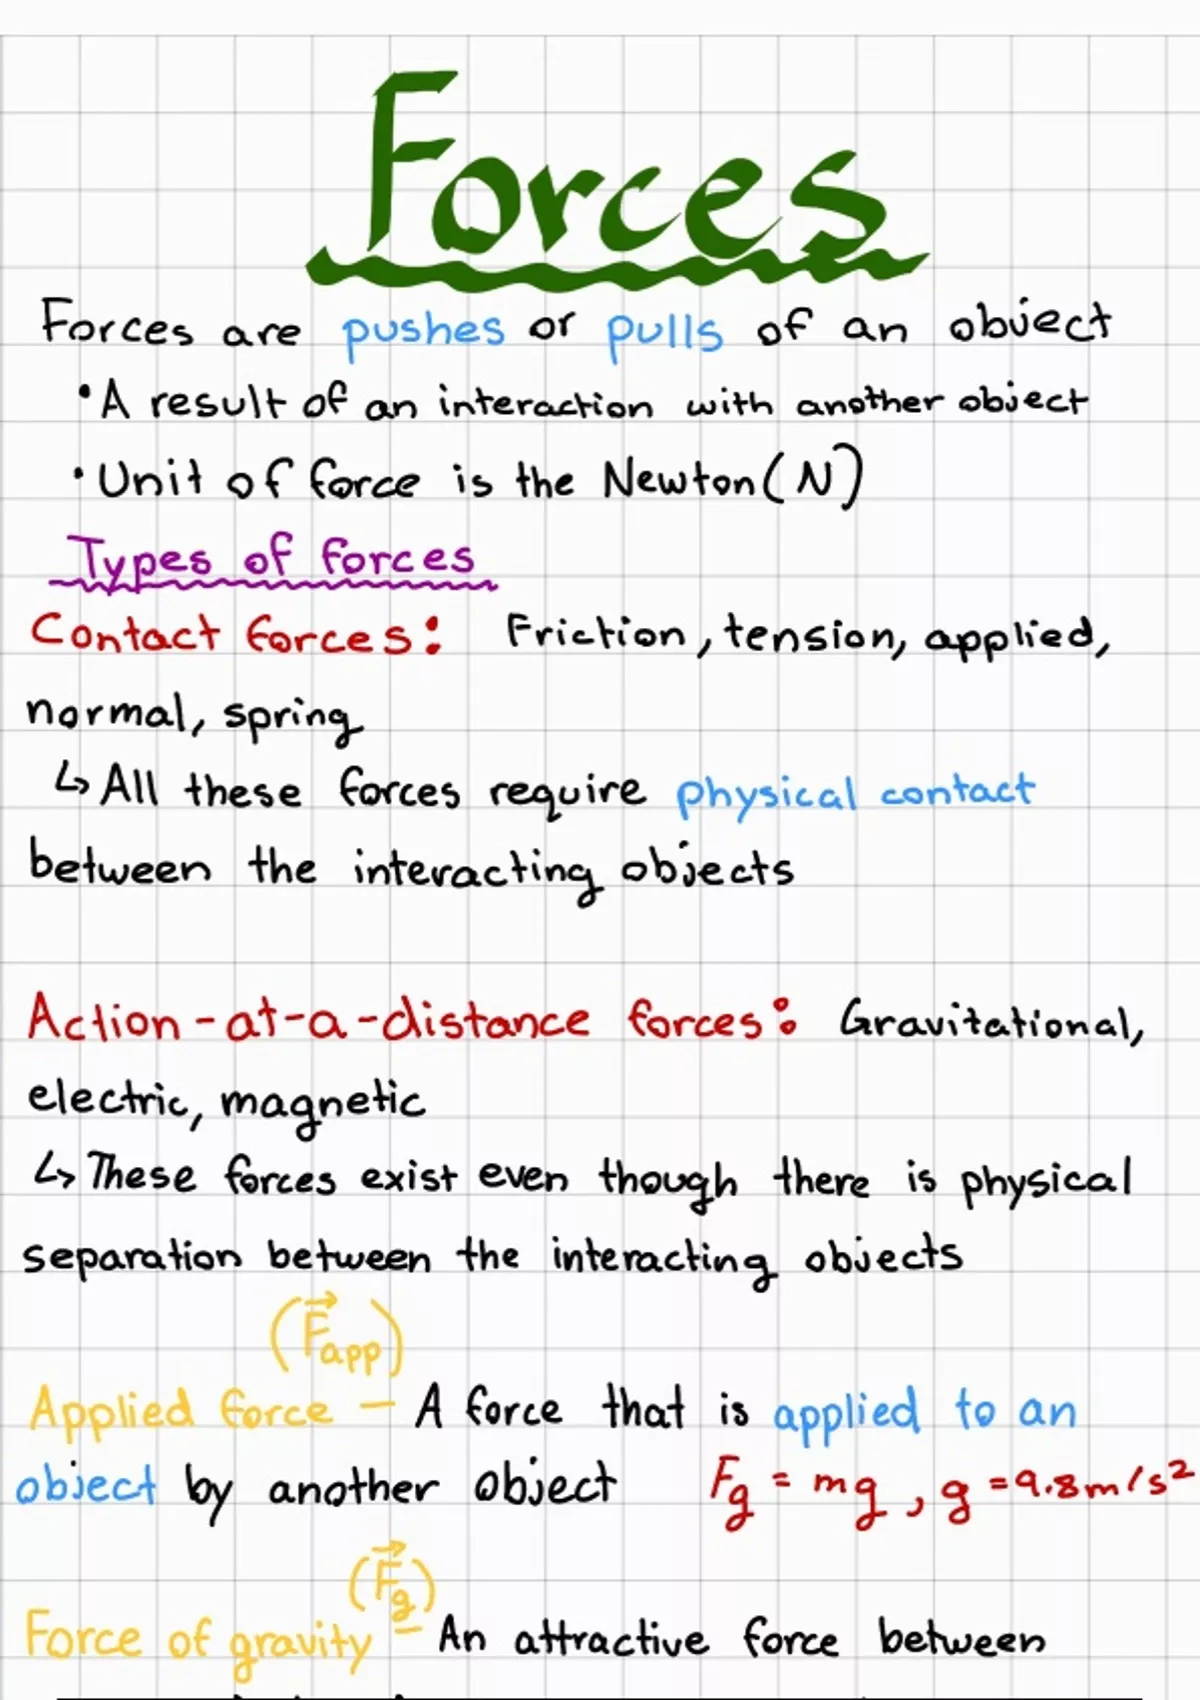 Forces
Forces are pushes or pulls of an object
• A result of an interaction with another object
• Unit of force is the Newton (N)
Types of forces
Contact forces: Friction, tension, applied,
normal, spring
↳ All these forces require physical contact
between the interacting objects
Action-at-a-distance forces: Gravitational,
electric, magnetic
↳ These forces exist even though there is physical
separation between the interacting objects
(F⃗app)
Applied force – A force that is applied to an
object by another object Fg = mg, g = 9.8m/s²
(F⃗g)
Force of gravity – An attractive force between